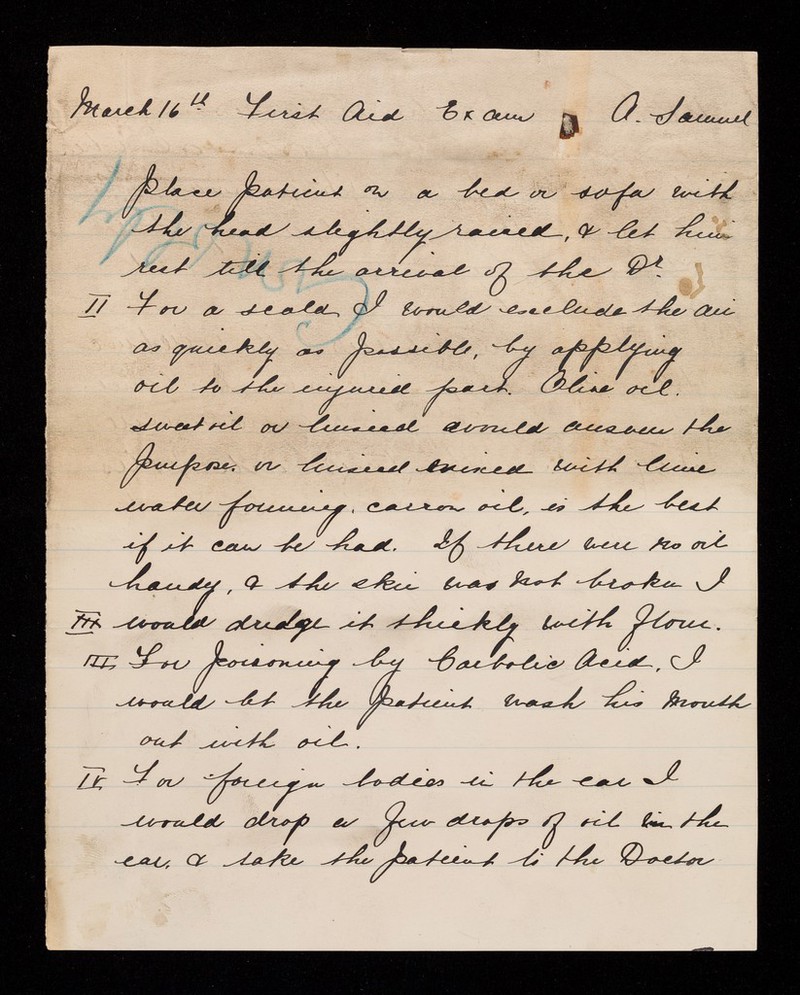 March 16th First Aid Exam A. Samuel
Place patient on a bed or sofa with
the head slightly raised, & let him
rest till the arrival of the Dr.
II For a scald I would exclude the air
as quickly as possible, by applying
oil to the injured part. Olive oil.
sweet oil or linseed would answer the
purpose. or linseed mixed with lime
water forming, carron oil, is the best
if it can be had. If there were no oil
handy, & the skin was not broken I
III would dredge it thickly with flour.
III For poisoning by Carbolic Acid, I
would let the patient wash his mouth
out with oil.
IV For foreign bodies in the ear I
would drop a few drops of oil in the
ear, & take the patient to the Doctor